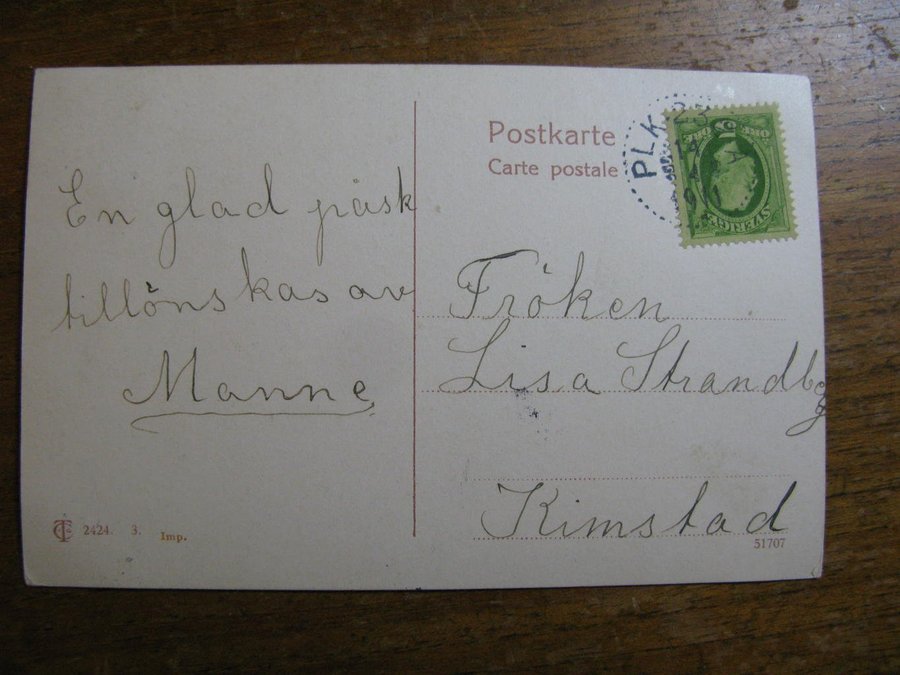 Postkarte
Carte postale
PLK
En glad påsk
tillönskas av
Manne
Fröken
Lisa Strandbg
Kimstad
2424. 3. Imp.
51707
SVERIGE